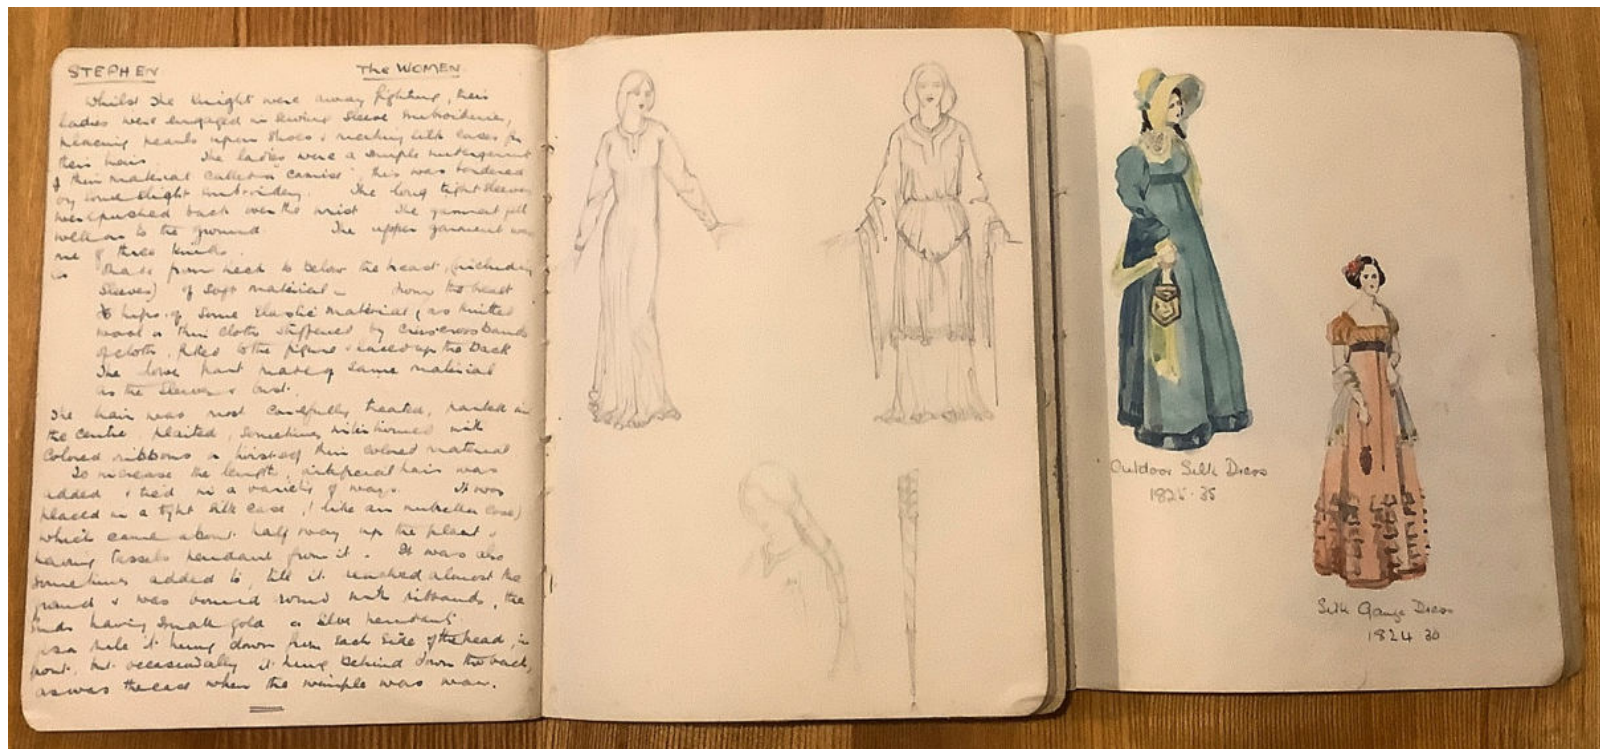 STEPHEN The WOMEN
Whilst the Knight were away fighting, their
ladies were engaged in sewing sleeve embroideries,
placing pearls upon shoes & making silk cases for
their hair. The ladies wore a simple
of thin material called a camise this was bordered
by some slight embroidery. The long tight sleeves
were pushed back over the wrist The garment fell
well on to the ground The upper garment was
one of three kinds.
Made from neck to below the breast, (including
Sleeves) of soft material – from the breast
to hips of some Elastic material (as knitted
wool or thin cloth stiffened by criss cross bands
of cloth, fitted to the figure & laced up the Back
The lower part made of same material
as the Sleeves & bust.
The hair was most carefully treated, parted in
the centre, plaited, sometimes with
colored ribbons or twists of thin colored material
To increase the length, artificial hair was
added & tied in a variety of ways. It was
placed in a tight silk case, (like an umbrella case)
which came about half way up the plait &
having tassels pendant from it. It was also
sometimes added to, till it reached almost the
ground & was bound round with ribbands, the
Ends having small gold or silver pendant
As a rule it hung down from each side of the head, in
front, but occasionally it hung Behind down the back,
as was the case when the wimple was worn.
Outdoor Silk Dress
1825-35
Silk Gauze Dress
1824 30